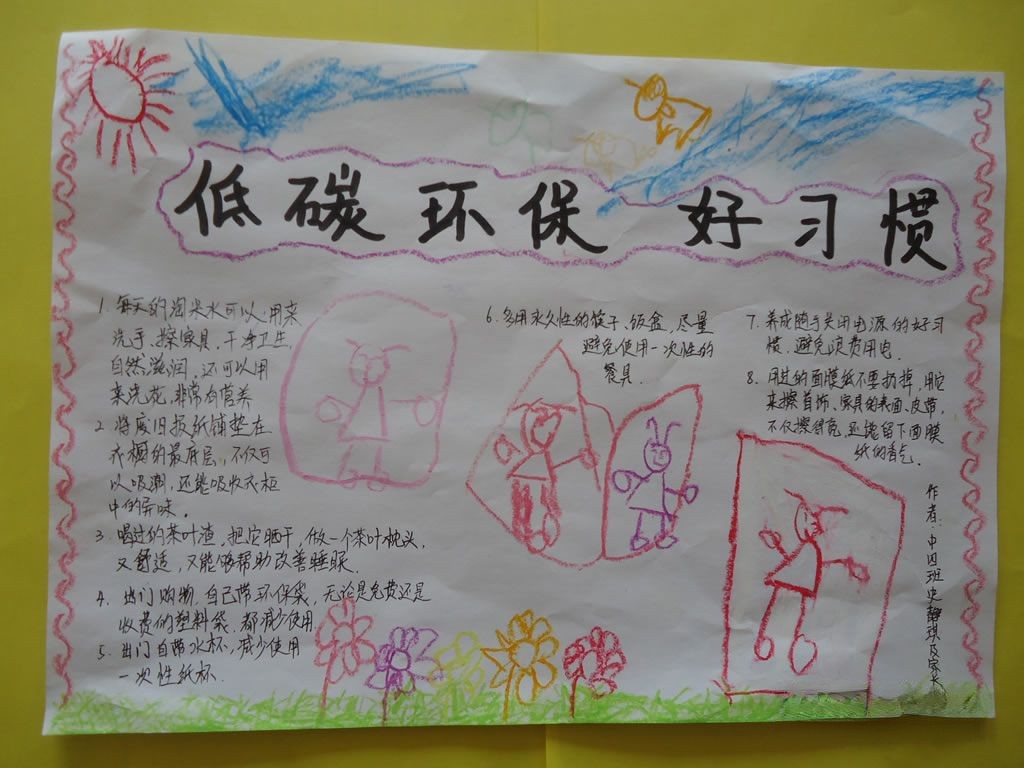 低碳环保 好习惯
1. 每天的淘米水可以用来
洗手、擦家具,干净卫生,
自然滋润,还可以用
来浇花,非常有营养
2. 将废旧报纸铺垫在
衣橱的最底层,不仅可
以吸潮,还能吸收衣柜
中的异味。
3. 喝过的茶叶渣,把它晒干,做一个茶叶枕头,
又舒适,又能够帮助改善睡眠。
4. 出门购物,自己带环保袋,无论是免费还是
收费的塑料袋,都减少使用
5. 出门自带水杯,减少使用
一次性纸杯.
6. 多用永久性的筷子、饭盒,尽量
避免使用一次性的
餐具.
7. 养成随手关闭电源的好习
惯,避免浪费用电.
8. 用过的面膜纸不要扔掉,用它
来擦首饰、家具的表面、皮带,
不仅擦得亮,还能留下面膜
纸的香气.
作者:中四班史静琪及家长